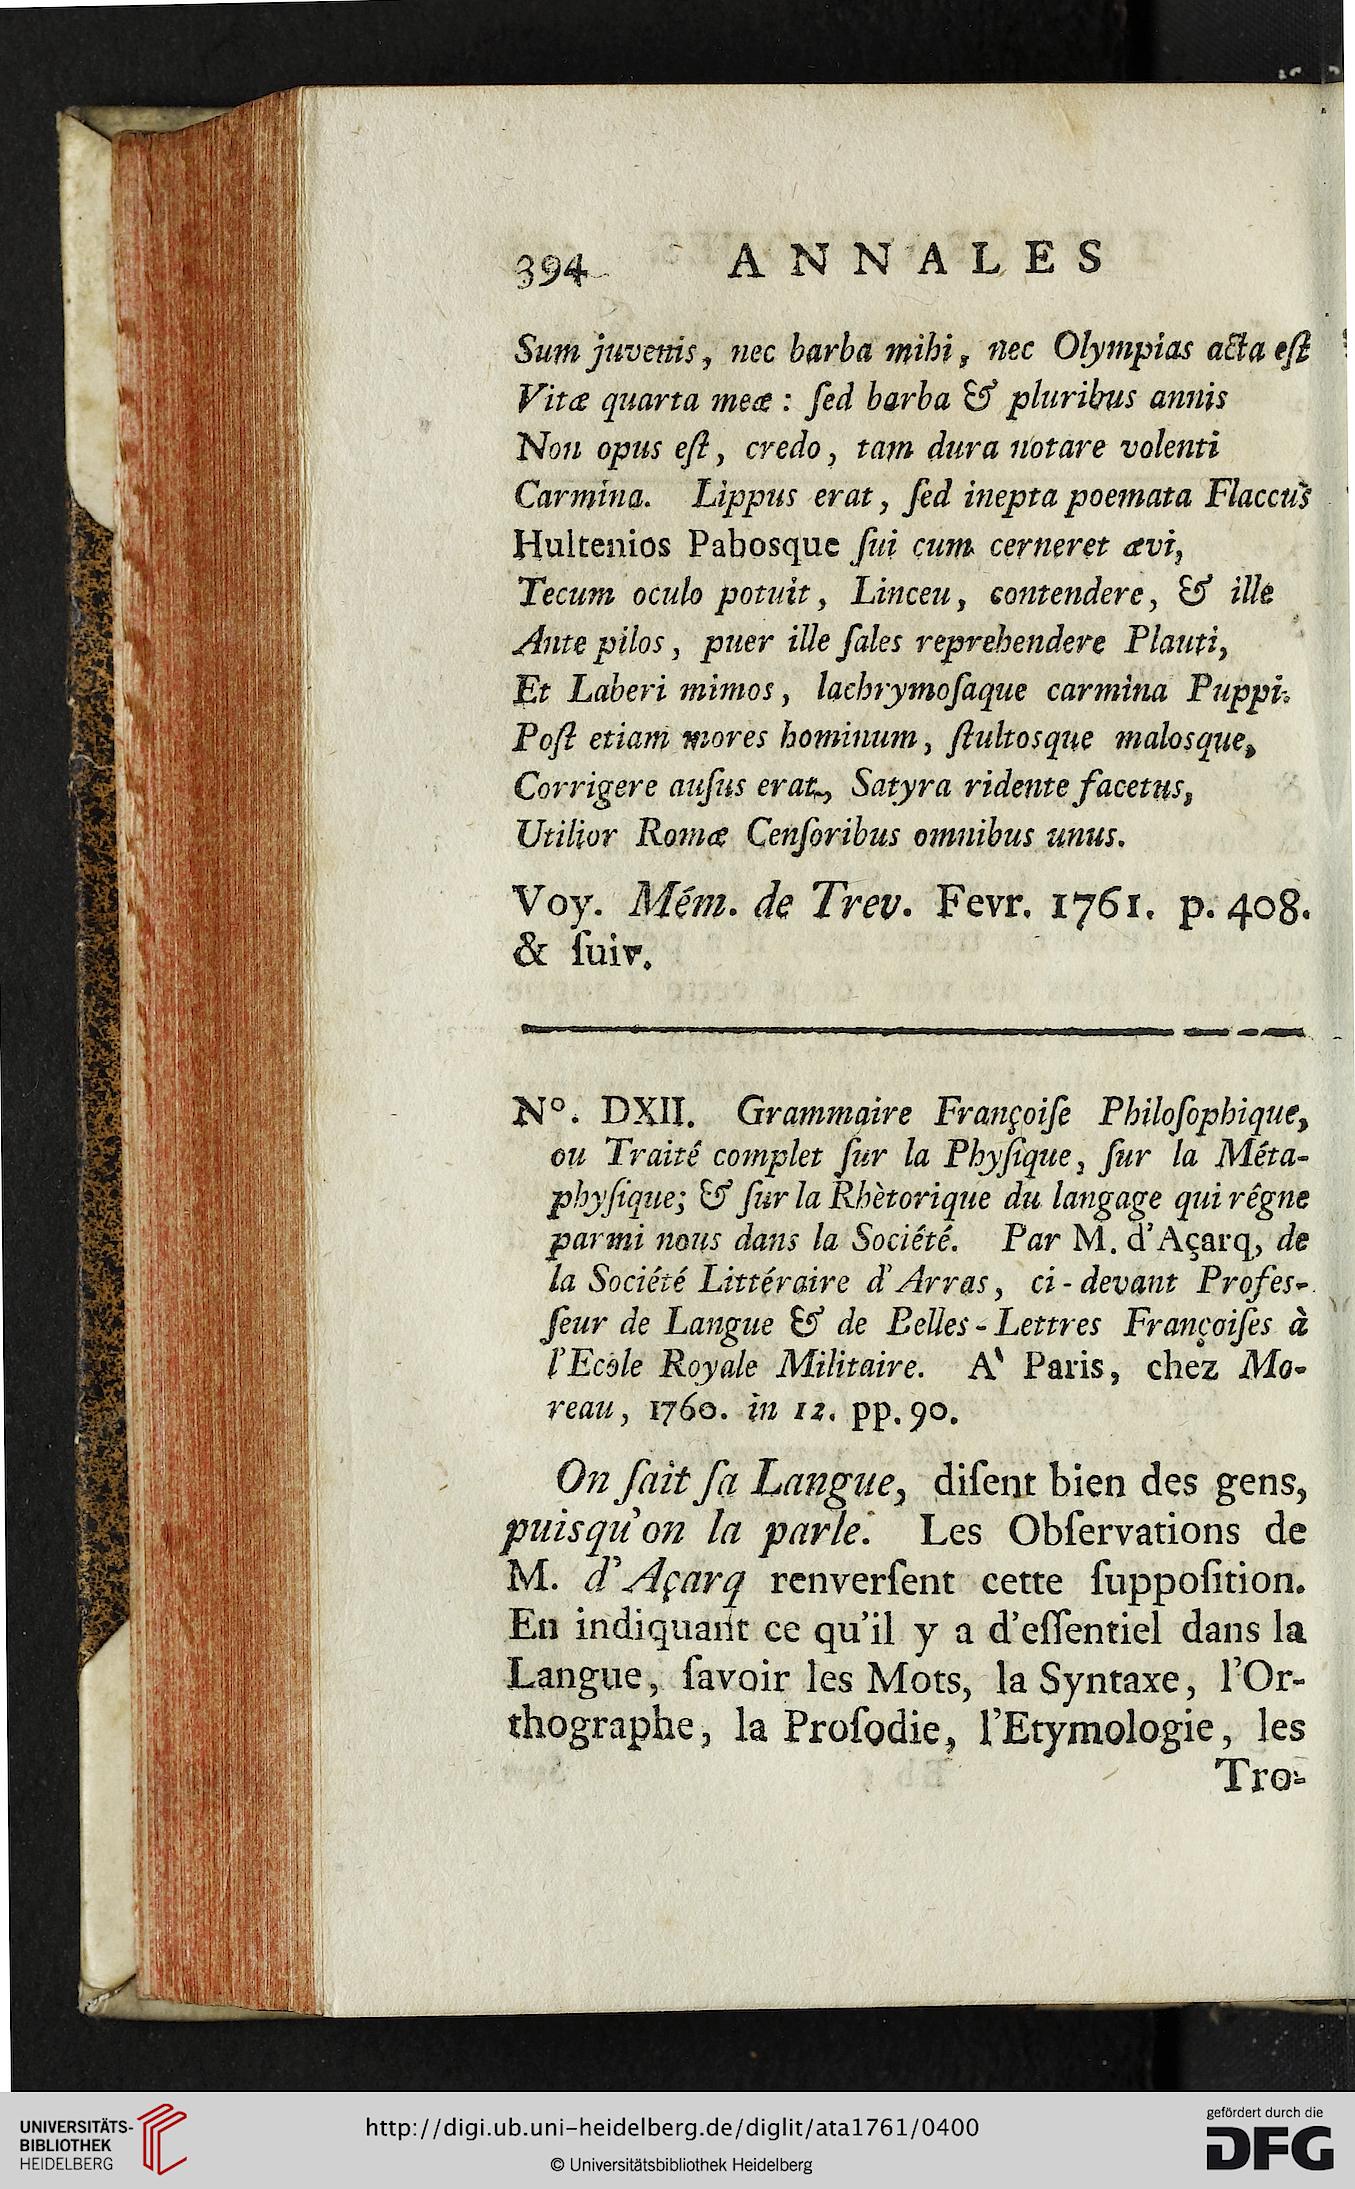 394 ANNALES
Sum juvenis, nec barba mihi, nec Olympias acta eſt
Vitæ quarta meæ : ſed barba & pluribus annis
Non opus eſt, credo, tam dura notare volenti
Carmina. Lippus erat, ſed inepta poemata Flaccus
Hultenios Pabosque ſui cum cerneret ævi,
Tecum oculo potuit, Linceu, contendere, & ille
Ante pilos, puer ille ſales reprehendere Plauti,
Et Laberi mimos, lachrymoſaque carmina Puppi.
Poſt etiam mores hominum, ſtultosque malosque,
Corrigere auſus erat, Satyra ridente facetus,
Utilior Romæ Cenſoribus omnibus unus.
Voy. Mém. de Trev. Fevr. 1761. p. 408.
& ſuiv.
N°. DXII. Grammaire Françoiſe Philoſophique,
ou Traité complet ſur la Phyſique, ſur la Méta-
phyſique; & ſur la Rhètorique du langage qui régne
parmi nous dans la Société. Par M. d'Açarq, de
la Société Littéraire d'Arras, ci-devant Profes-
ſeur de Langue & de Belles-Lettres Françoiſes à
l'Ecole Royale Militaire. A' Paris, chez Mo-
reau, 1760. in 12. pp. 90.
On ſait ſa Langue, diſent bien des gens,
puisqu'on la parle. Les Obſervations de
M. d'Açarq renverſent cette ſuppoſition.
En indiquant ce qu'il y a d'eſſentiel dans la
Langue, ſavoir les Mots, la Syntaxe, l'Or-
thographe, la Proſodie, l'Etymologie, les
Tro-
UNIVERSITÄTS-
BIBLIOTHEK
HEIDELBERG
http://digi.ub.uni-heidelberg.de/diglit/ata1761/0400
© Universitätsbibliothek Heidelberg
gefördert durch die
DFG